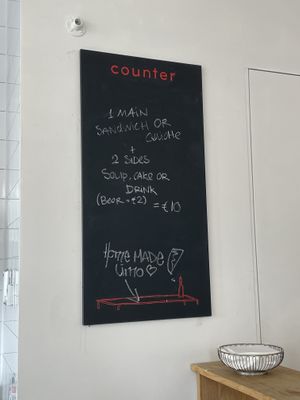 counter
1 MAIN
SANDWICH OR
QUICHE
+
2 SIDES
SOUP, CAKE OR
DRINK
(BEER + €2) = €10
Home MADE
LIMO